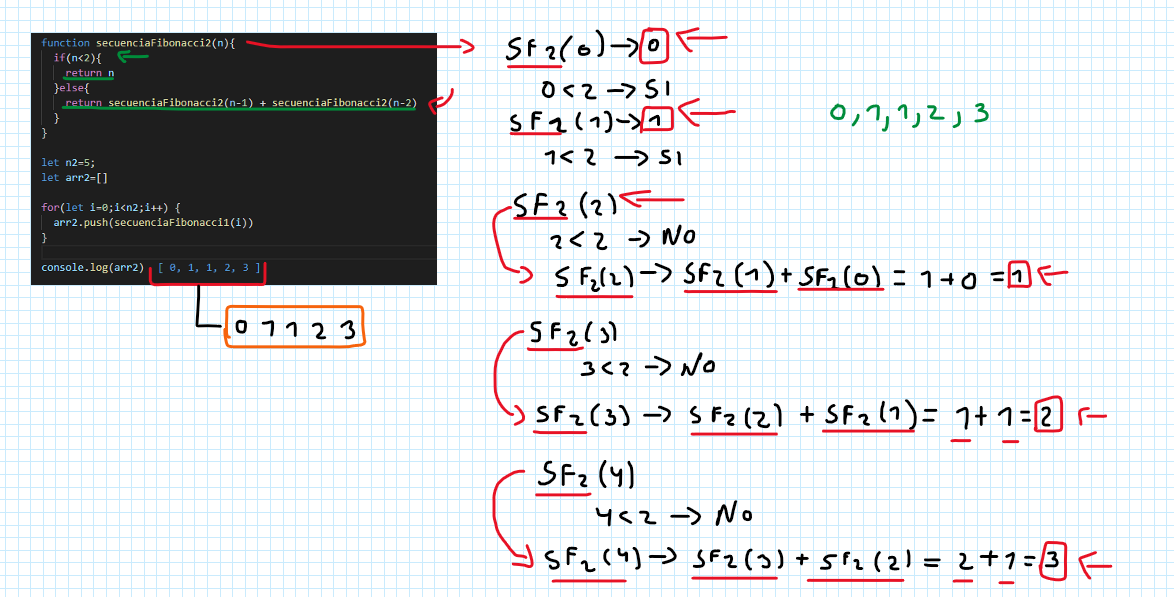 function secuenciaFibonacci2(n){
if(n<2){
return n
}else{
return secuenciaFibonacci2(n-1) + secuenciaFibonacci2(n-2)
}
}
let n2=5;
let arr2=[]
for(let i=0;i<n2;i++) {
arr2.push(secuenciaFibonacci1(i))
}
console.log(arr2) [ 0, 1, 1, 2, 3 ]
0 1 1 2 3
SF2(0)→0
0<2→SI
SF2(1)→1
1<2→SI
SF2(2)
2<2→NO
SF2(2)→SF2(1)+SF2(0)=1+0=1
SF2(3)
3<2→NO
SF2(3)→SF2(2)+SF2(1)=1+1=2
SF2(4)
4<2→NO
SF2(4)→SF2(3)+SF2(2)=2+1=3
0,1,1,2,3